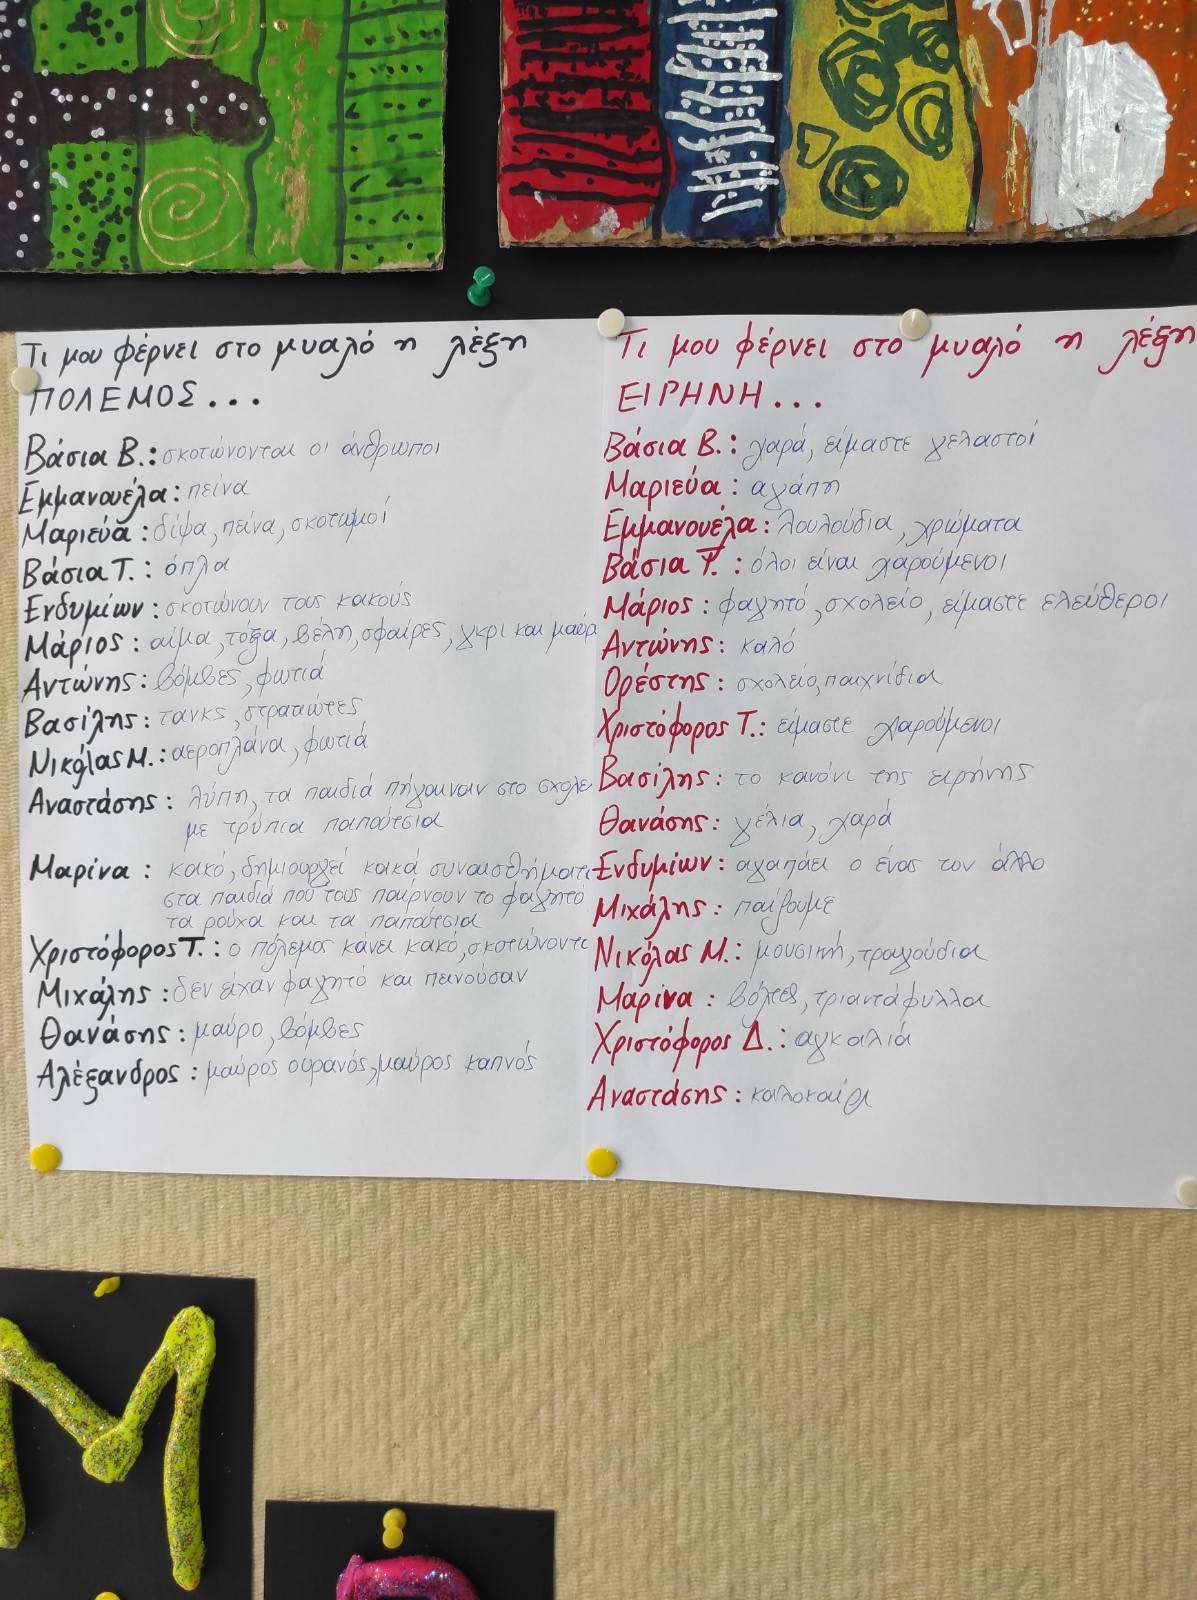 Τι μου φέρνει στο μυαλό η λέξη
ΠΟΛΕΜΟΣ...
Βάσια Β.: σκοτώνονται οι άνθρωποι
Εμμανουέλα: πείνα
Μαριεύα: δίψα, πείνα, σκοτωμοί
Βάσια Τ.: όπλα
Ενδυμίων: σκοτώνουν τους κακούς
Μάριος: αίμα, τόξα, βέλη, σφαίρες, γκρι και μαύρ
Αντώνης: βόμβες, φωτιά
Βασίλης: τανκς, στρατιώτες
Νικόλας Μ.: αεροπλάνα, φωτιά
Αναστάσης: λύπη, τα παιδιά πήγαιναν στο σχολε
με τρύπια παπούτσια
Μαρίνα: κακό, δημιουργεί κακά συναισθήματα
στα παιδιά που τους παίρνουν το φαγητό
τα ρούχα και τα παπούτσια
Χριστόφορος Τ.: ο πόλεμος κάνει κακό, σκοτώνοντα
Μιχάλης: δεν είχαν φαγητό και πεινούσαν
Θανάσης: μαύρο, βόμβες
Αλέξανδρος: μαύρος ουρανός, μαύρος καπνός
Τι μου φέρνει στο μυαλό η λέξη
ΕΙΡΗΝΗ...
Βάσια Β.: χαρά, είμαστε γελαστοί
Μαριεύα: αγάπη
Εμμανουέλα: λουλούδια, χρώματα
Βάσια Τ.: όλοι είναι χαρούμενοι
Μάριος: φαγητό, σχολείο, είμαστε ελεύθεροι
Αντώνης: καλό
Ορέστης: σχολείο, παιχνίδια
Χριστόφορος Τ.: είμαστε χαρούμενοι
Βασίλης: το κανόνι της ειρήνης
Θανάσης: γέλια, χαρά
Ενδυμίων: αγαπάει ο ένας τον άλλο
Μιχάλης: παίζουμε
Νικόλας Μ.: μουσική, τραγούδια
Μαρίνα: βόλτες, τριαντάφυλλα
Χριστόφορος Δ.: αγκαλιά
Αναστάσης: καλοκαίρι
Μ